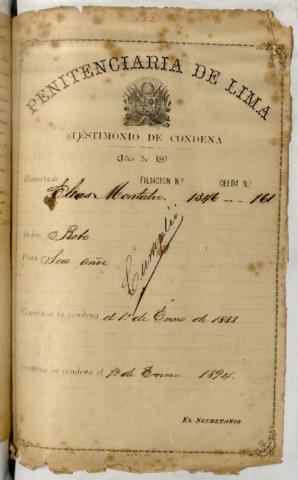 PENITENCIARIA DE LIMA
TESTIMONIO DE CONDENA
Año de 189
Rematado Elias Montalvo FILIACION N.º 1346 CELDA N.º 161
Delito Robo
Pena Seis años
Cumplió
Comienza la condena el 1º de Enero de 1888
Termina la condena el 1º de Enero 1894
EL SECRETARIO